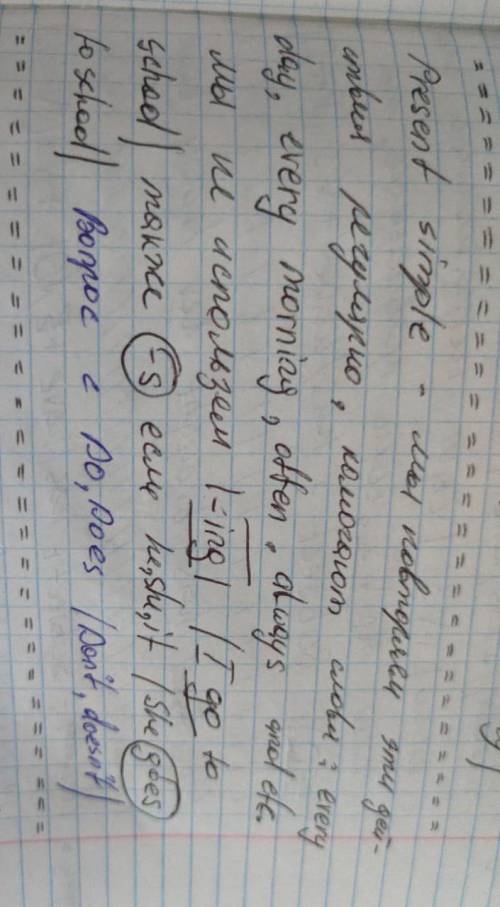 Present simple - мы повторяем эти дей-
ствия регулярно, помогают слова: every
day, every morning, often, always and etc.
мы не используем |-ing| |I go to
school| также -s если he, she, it |She goes
to school| Вопрос с Do, Does |Don't, doesn't|